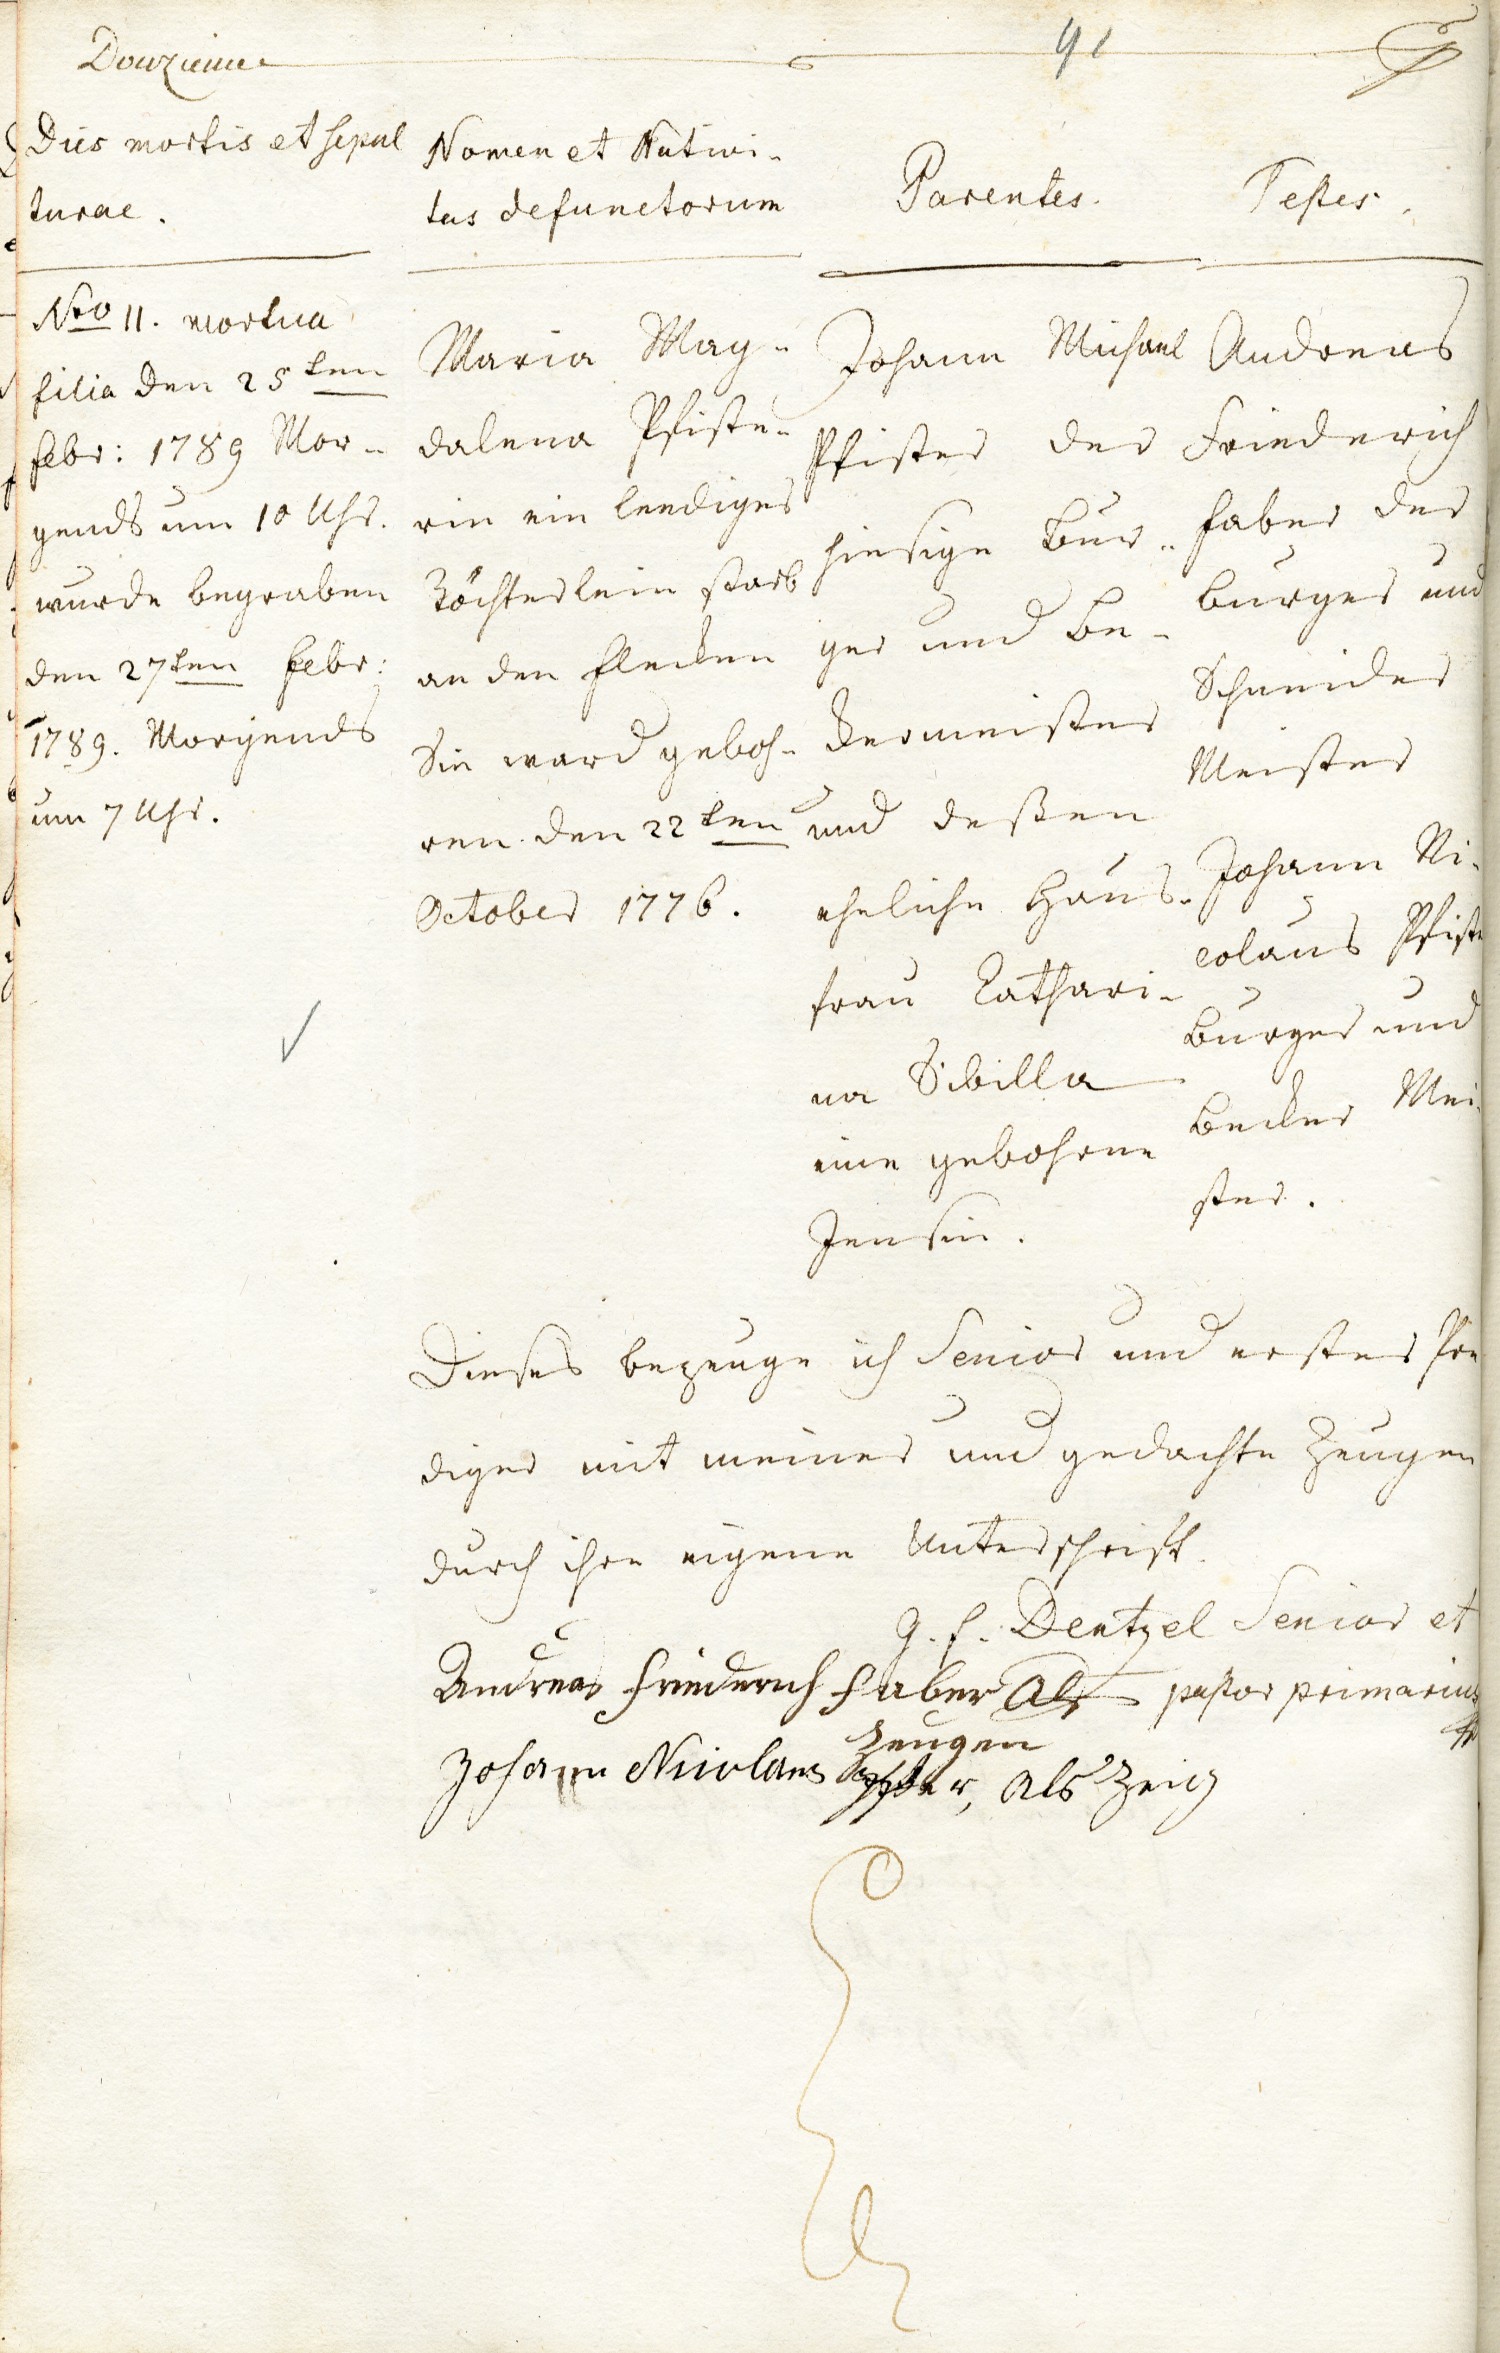 Douzieme
91
Dies mortis et sepul
turae.
Nomen et Nativi-
tas defunctorum
Parentes.
Testes.
Nro 11. mortua
filia den 25ten
febr: 1789 Mor-
gends um 10 Uhr.
wurde begraben
den 27ten febr:
1789. Morgends
um 7 Uhr.
Maria Mag-
dalena Pfiste-
rin ein leediges
Töchterlein starb
an den flecken
Sie ward geboh-
ren den 22ten
October 1776.
Johann Michael
Pfister der
hiesige Bur-
ger und Be-
ckermeister
und deßen
eheliche Haus-
frau Cathari-
na Sibilla
eine gebohrne
Jensin.
Andreas
Friederich
faber der
burger und
Schneider
Meister
Johann Ni-
colaus Pfiste
Burger und
Becker Mei-
ster.
Dieses bezeuge ich Senior und erster Pre
diger mit meiner und gedachte Zeugen
durch ihre eigene Unterschrift.
G. f. Dentzel Senior et
pastor primarius
Andreas friederich faber Als
Zeugen
Johann Nicolaus Pfister, als Zeig